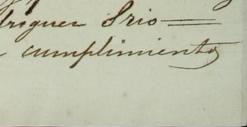 driguez Srio
cumplimiento